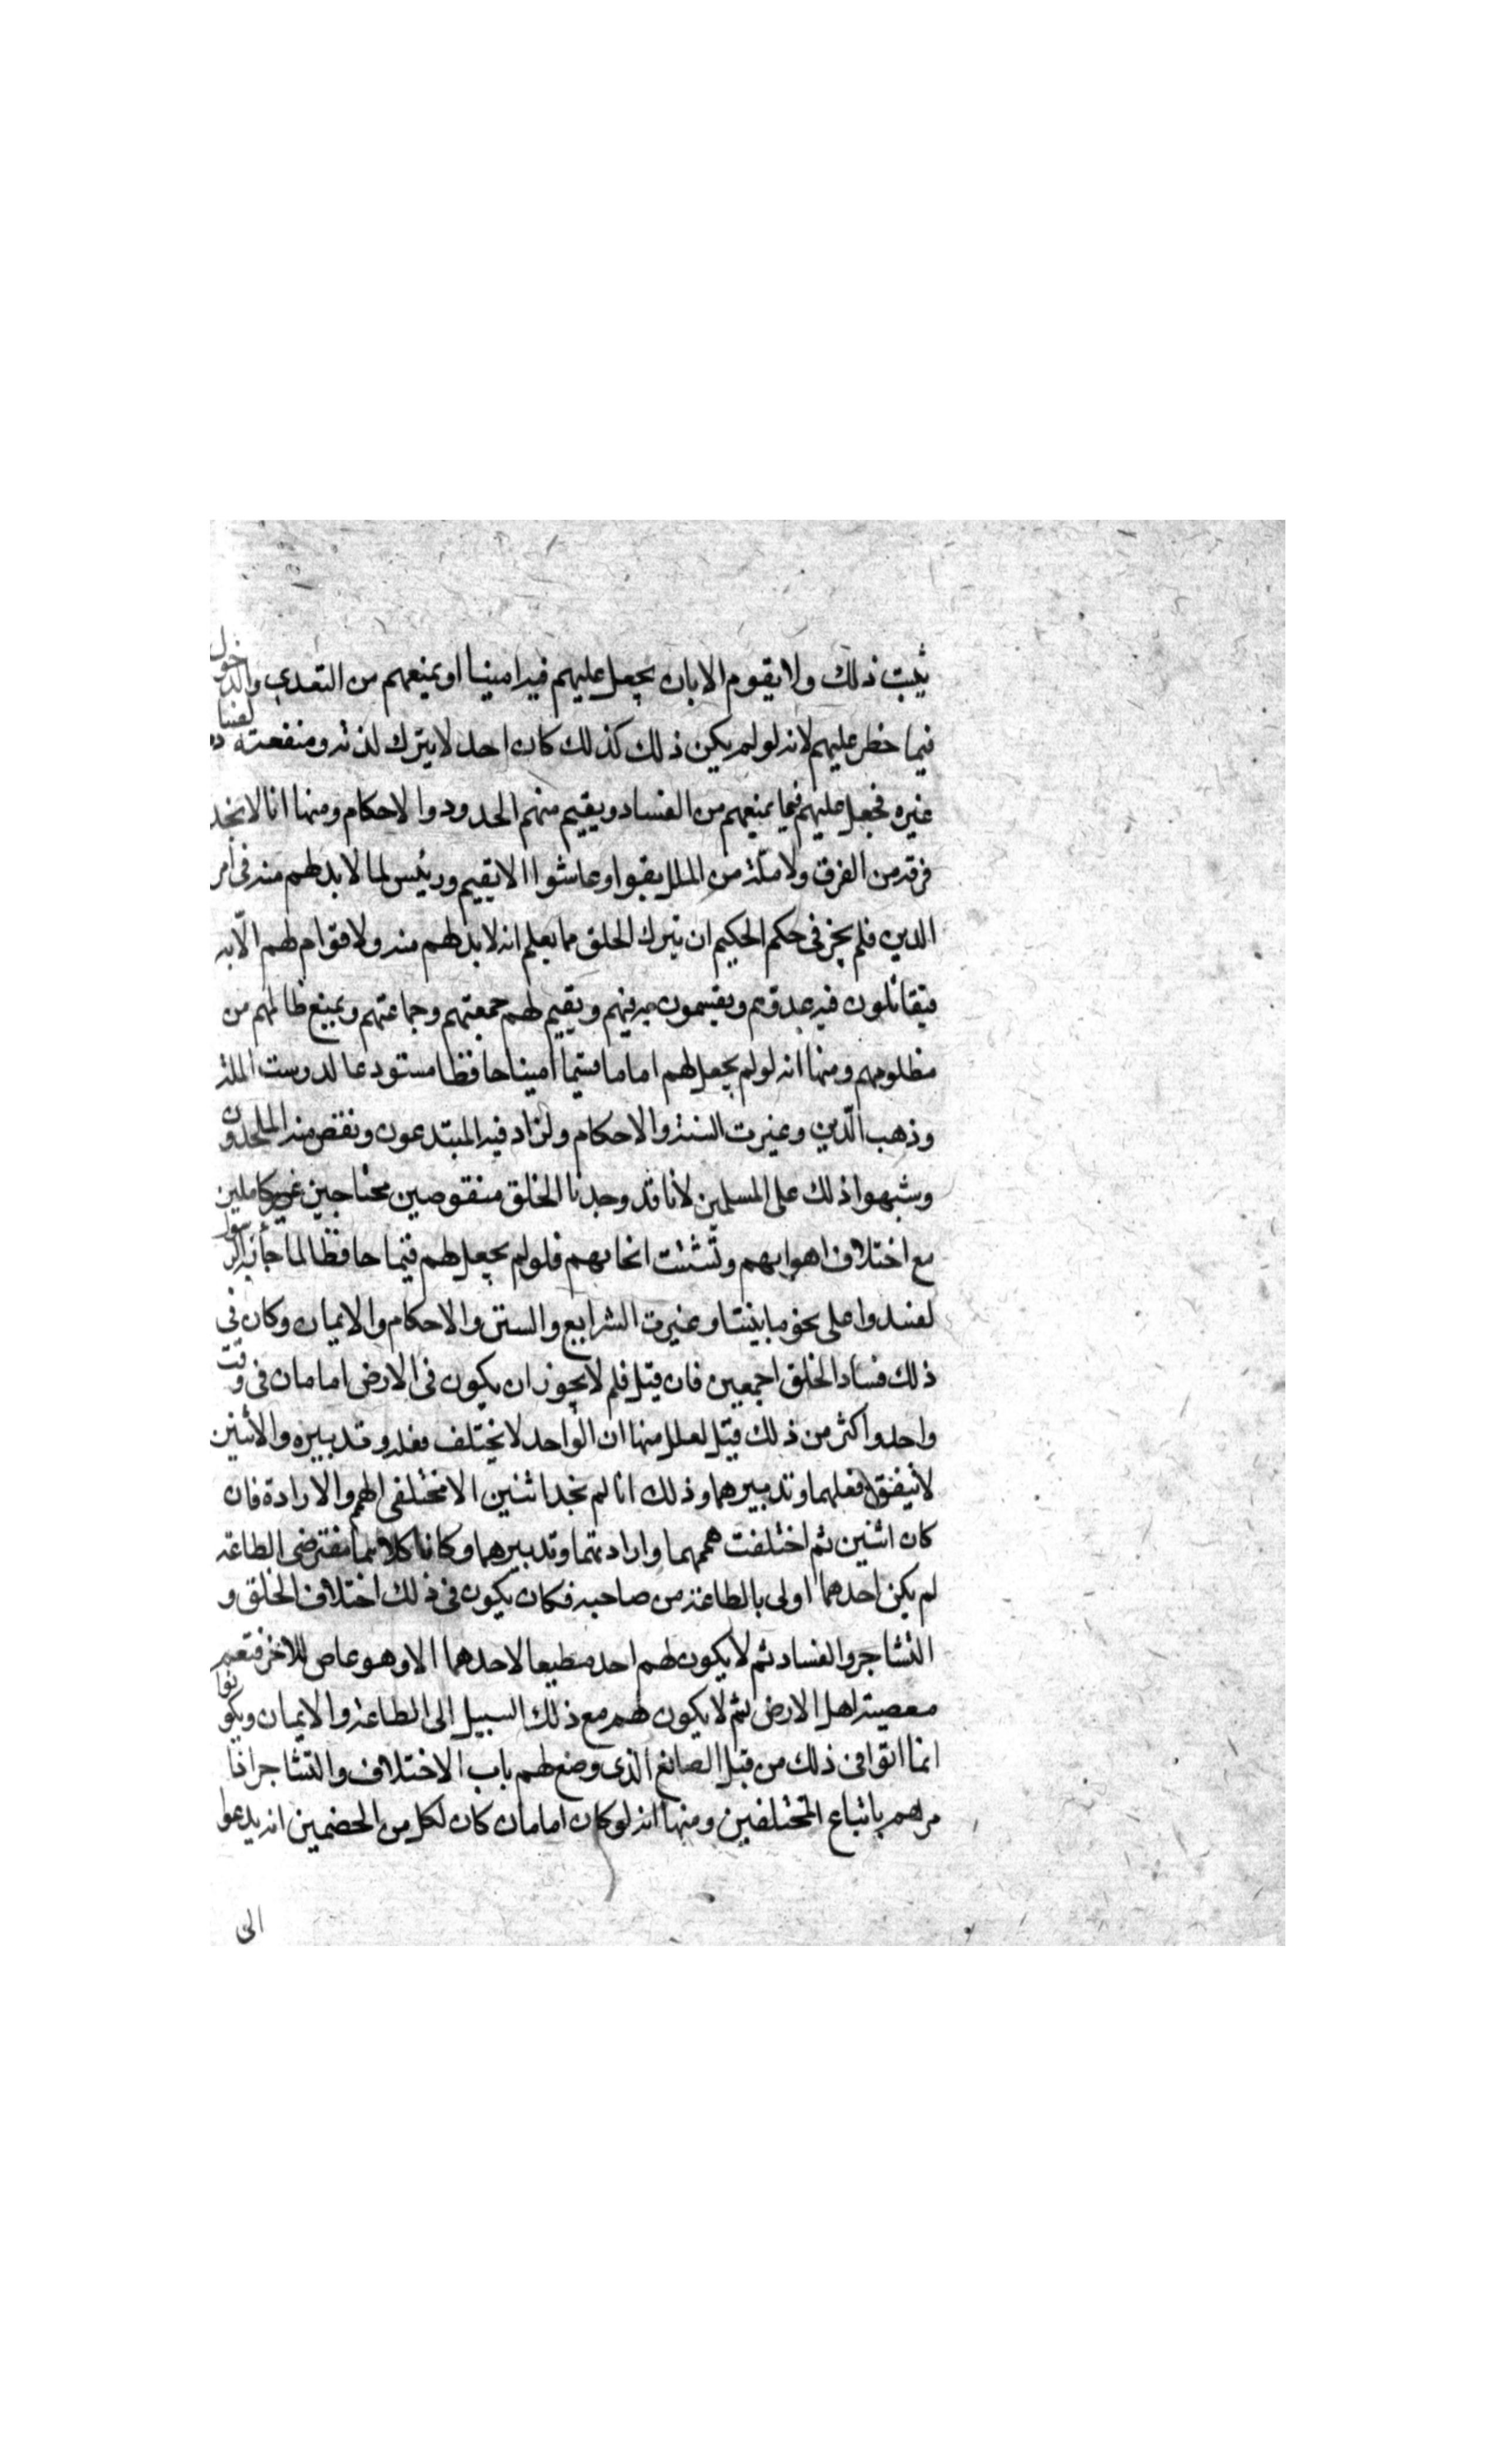 يثبت ذلك ولا يقوم الا بان يجعل عليهم فيه امينا او يمنعهم من التعدي والدخول
فيما حظر عليهم لانه لو لم يكن ذلك كذلك كان احد لا يترك لذته ومنفعته لفساد
غيره فجعل عليهم قيما يمنعهم من الفساد ويقيم منهم الحدود والاحكام ومنها انا لا نجد
فرقة من الفرق ولا ملة من الملل بقوا وعاشوا الا بقيم ورئيس لما لا بد لهم منه في امر
الدين فلم يجز في حكم الحكيم ان يترك الخلق مما يعلم انه لا بد لهم منه ولا قوام لهم الا به
فيقاتلون فيه عدوهم ويقسمون به فيهم ويقيم لهم جمعتهم وجماعتهم ويمنع ظالمهم من
مظلومهم ومنها انه لو لم يجعل لهم اماما قيما امينا حافظا مستودعا لدرست الملة
وذهب الدين وغيرت السنة والاحكام ولزاد فيه المبتدعون ونقص منه الملحدون
وشبهوا ذلك على المسلمين لانا قد وجدنا الخلق منقوصين محتاجين غير كاملين
مع اختلافهم اهوايهم وتشتت انحايهم فلو لم يجعل لهم قيما حافظا لما جاء به الرسول
لفسدوا على نحو ما بينا وغيرت الشرايع والسنن والاحكام والايمان وكان في
ذلك فساد الخلق اجمعين فان قيل فلم لا يجوز ان يكون في الارض امامان في وقت
واحد واكثر من ذلك قيل لعلل منها ان الواحد لا يختلف فعله وتدبيره والاثنين
لا يتفق فعلهما وتدبيرهما وذلك انا لم نجد اثنين الا مختلفي الهمم والارادة فان
كان اثنين ثم اختلفت هممهما وارادتهما وتدبيرهما وكانا كلاهما مفترضي الطاعة
لم يكن احدهما اولى بالطاعة من صاحبه فكان يكون في ذلك اختلاف الخلق و
التشاجر والفساد ثم لا يكون لهم احد مطيعا لاحدهما الا وهو عاص للاخر فتعم
معصية اهل الارض ثم لا يكون لهم مع ذلك السبيل الى الطاعة والايمان ويكونوا
انما اتوا في ذلك من قبل الصانع الذي وضع لهم باب الاختلاف والتشاجر اذا
مرهم باتباع المختلفين ومنها انه لو كان امامان كان لكل من الخصمين ان يدعوا
الى